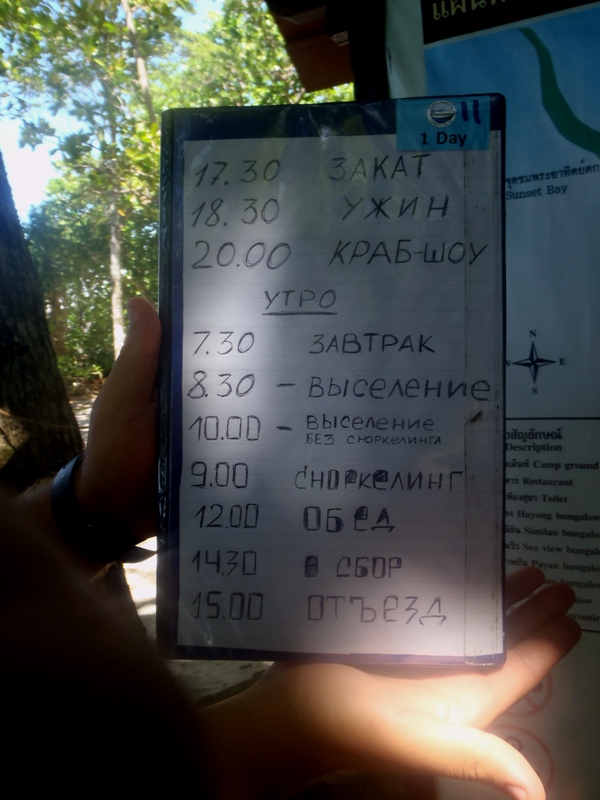 แผนท
11
1 Day
17.30 ЗАКАТ
18.30 УЖИН
20.00 КРАБ-ШОУ
УТРО
7.30 ЗАВТРАК
8.30 – ВЫСЕЛЕНИЕ
10.00 – ВЫСЕЛЕНИЕ
БЕЗ СНОРКЕЛИНГА
9.00 СНОРКЕЛИНГ
12.00 ОБЕД
14.30 СБОР
15.00 ОТЪЕЗД
จุดชมพระอาทิตย์ตก
Sunset Bay
N
E
S
Description
Camp ground
Restaurant
Toilet
Huyong bungalow
Similan bungalow
Sea view bungalo
Payan bungalow
bungalow